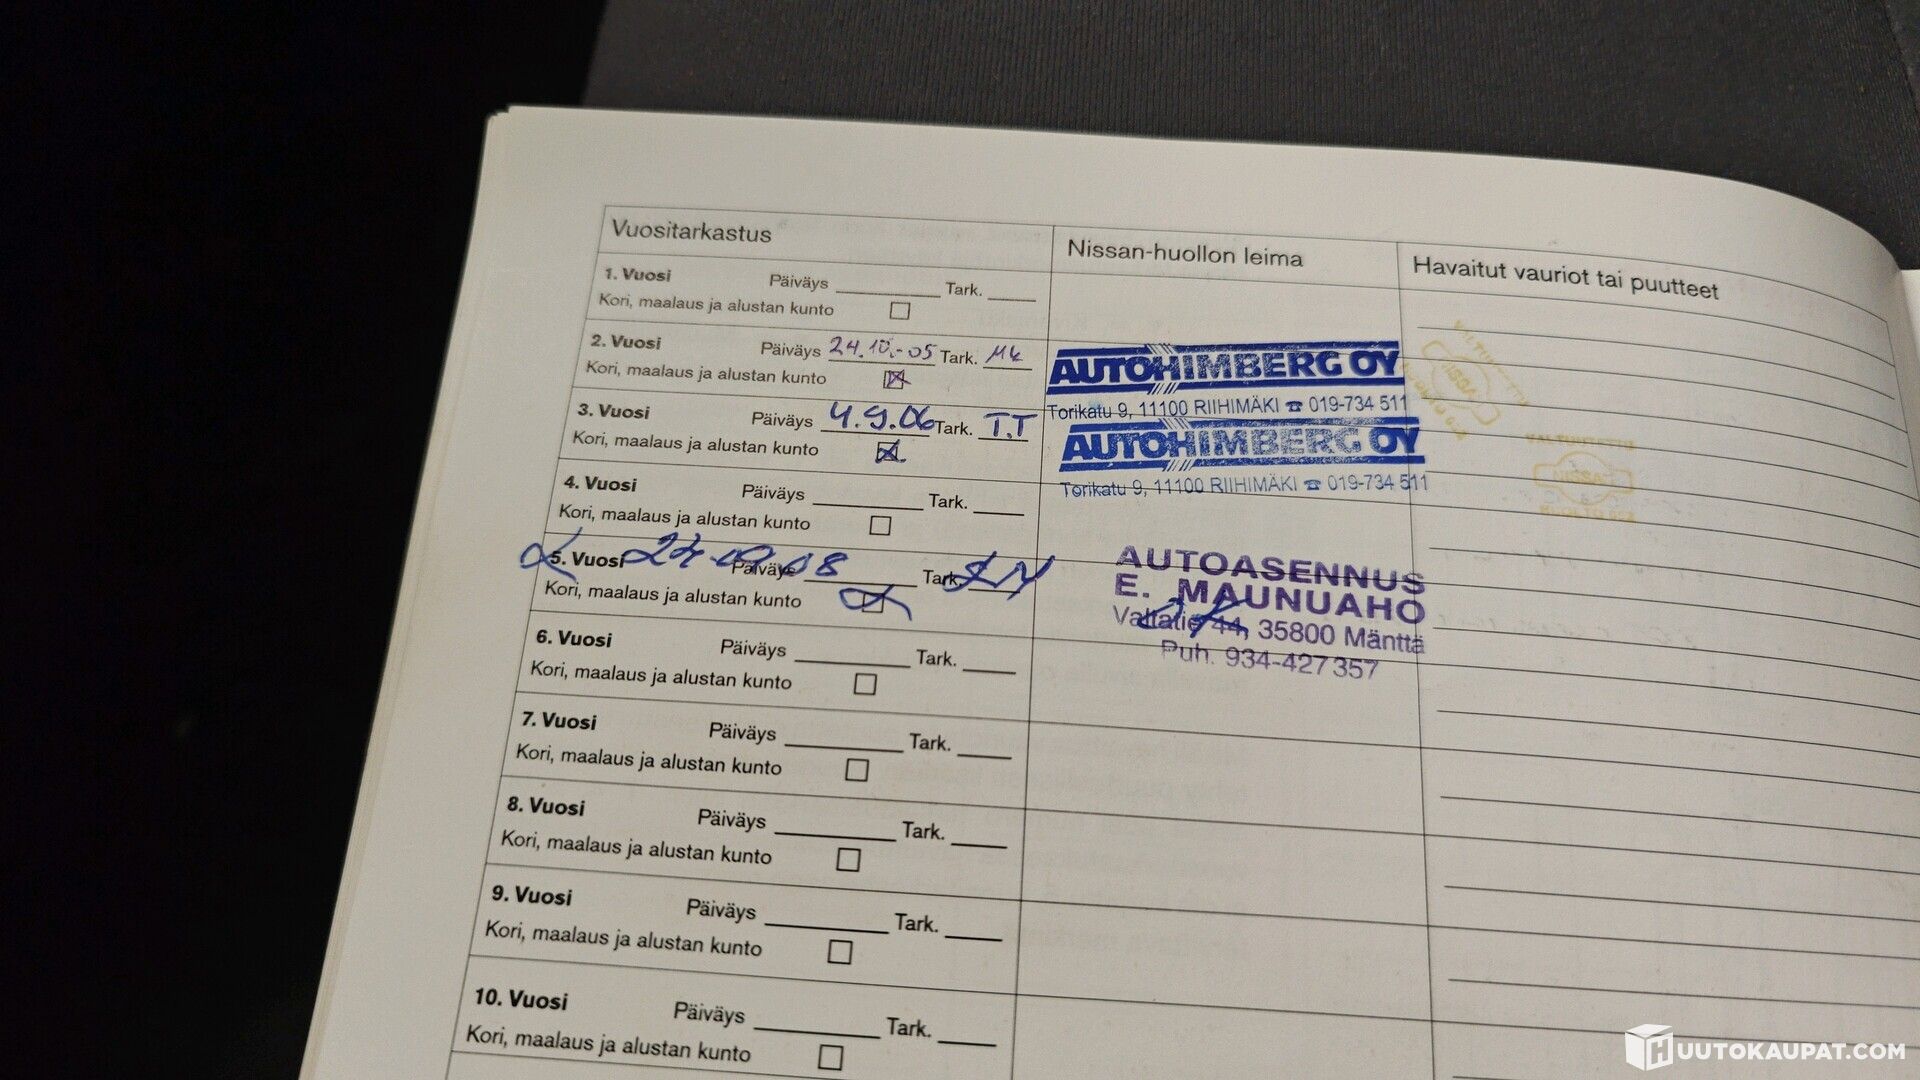 Vuositarkastus
Nissan-huollon leima
Havaitut vauriot tai puutteet
1. Vuosi Päiväys Tark.
Kori, maalaus ja alustan kunto
2. Vuosi Päiväys 24.10.-05 Tark. MK
Kori, maalaus ja alustan kunto
AUTOHIMBERG OY
Torikatu 9, 11100 RIIHIMÄKI ☎ 019-734 511
3. Vuosi Päiväys 4.9.06 Tark. T.T
Kori, maalaus ja alustan kunto
AUTOHIMBERG OY
Torikatu 9, 11100 RIIHIMÄKI ☎ 019-734 511
4. Vuosi Päiväys Tark.
Kori, maalaus ja alustan kunto
5. Vuosi Päiväys Tark.
Kori, maalaus ja alustan kunto
AUTOASENNUS
E. MAUNUAHO
Valtatie 44, 35800 Mänttä
Puh. 934-427 357
6. Vuosi Päiväys Tark.
Kori, maalaus ja alustan kunto
7. Vuosi Päiväys Tark.
Kori, maalaus ja alustan kunto
8. Vuosi Päiväys Tark.
Kori, maalaus ja alustan kunto
9. Vuosi Päiväys Tark.
Kori, maalaus ja alustan kunto
10. Vuosi Päiväys Tark.
Kori, maalaus ja alustan kunto
HUUTOKAUPAT.COM